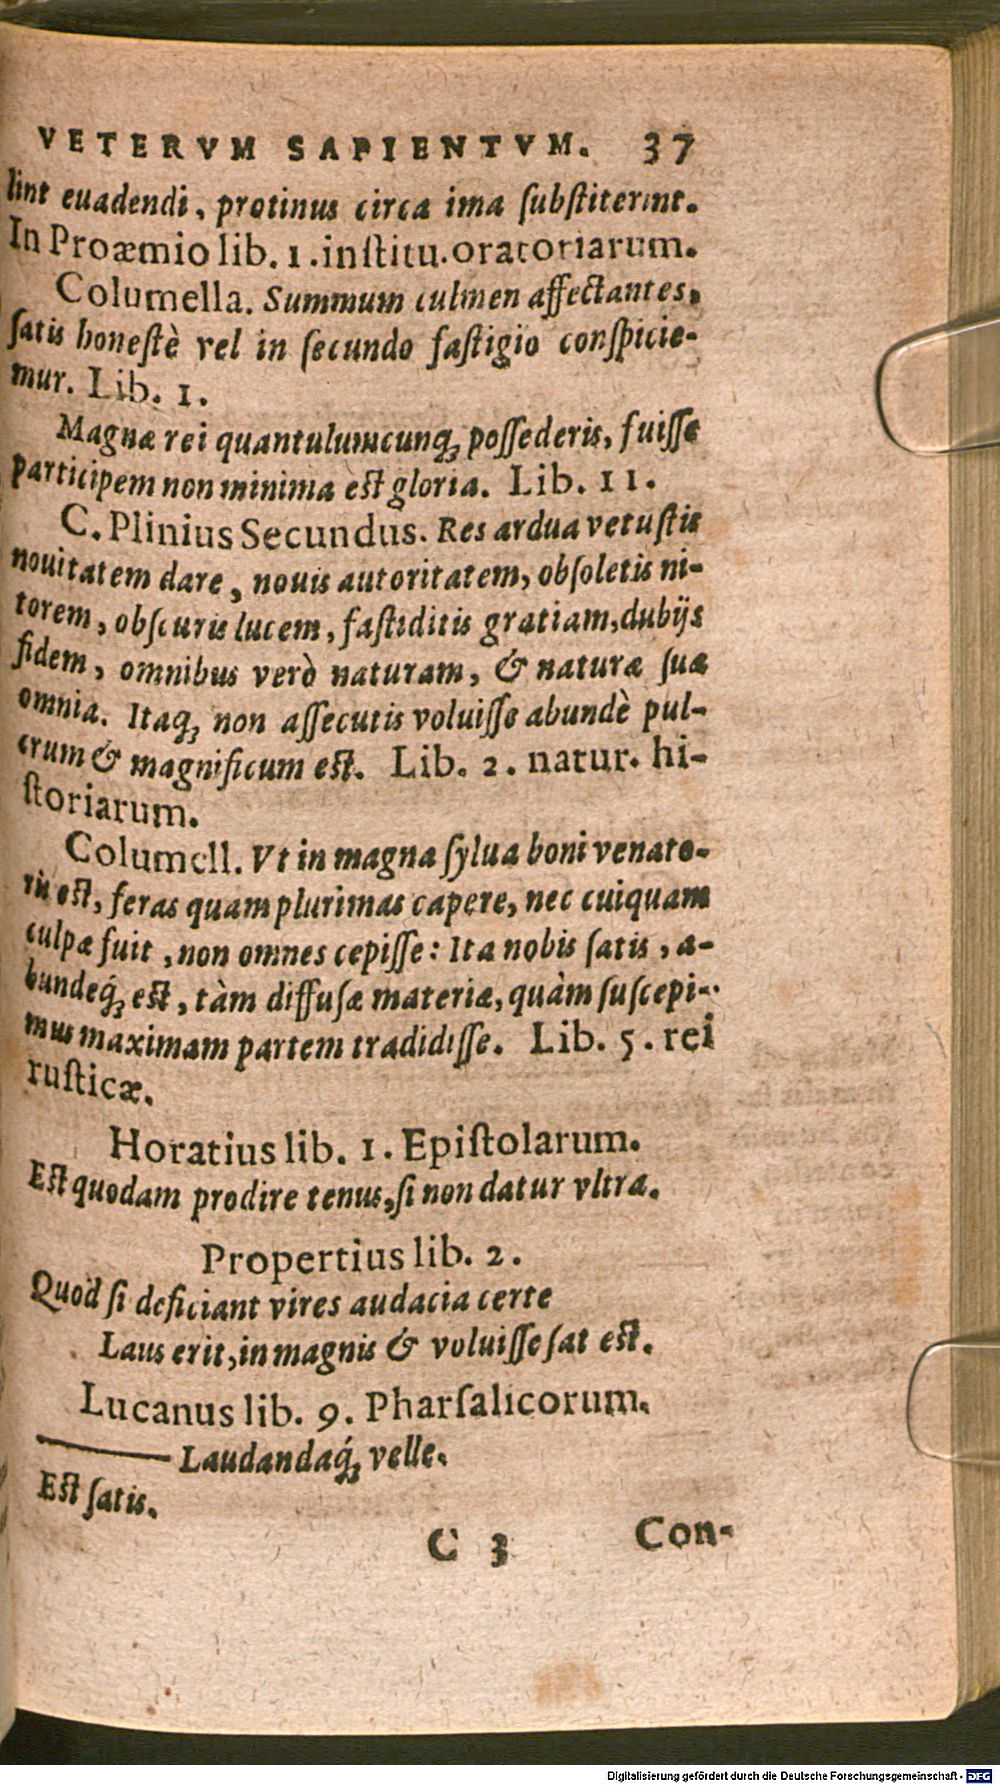 VETERVM SAPIENTVM. 37
lint euadendi, protinus circa ima ſubſtiterint.
In Proæmio lib. 1. inſtitu. oratoriarum.
Columella. Summum culmen affectantes,
ſatis honeſtè vel in ſecundo faſtigio conſpicie-
mur. Lib. 1.
Magnæ rei quantulumcunq; poſſederis, fuiſſe
participem non minima eſt gloria. Lib. 11.
C. Plinius Secundus. Res ardua vetuſtis
nouitatem dare, nouis autoritatem, obſoletis ni-
torem, obſcuris lucem, faſtiditis gratiam, dubijs
fidem, omnibus verò naturam, & naturæ ſuæ
omnia. Itaq; non aſſecutis voluiſſe abundè pul-
crum & magnificum eſt. Lib. 2. natur. hi-
ſtoriarum.
Columell. Vt in magna ſylua boni venato-
ris eſt, feras quam plurimas capere, nec cuiquam
culpæ fuit, non omnes cepiſſe: Ita nobis ſatis, a-
bundeq́; eſt, tàm diffuſæ materiæ, quàm ſuſcepi-
mus maximam partem tradidiſſe. Lib. 5. rei
ruſticæ.
Horatius lib. 1. Epiſtolarum.
Eſt quodam prodire tenus, ſi non datur vltra.
Propertius lib. 2.
Quod ſi deficiant vires audacia certe
Laus erit, in magnis & voluiſſe ſat eſt.
Lucanus lib. 9. Pharſalicorum.
——— Laudandaq́; velle.
Eſt ſatis.
C 3 Con-
Digitalisierung gefördert durch die Deutsche Forschungsgemeinschaft - DFG